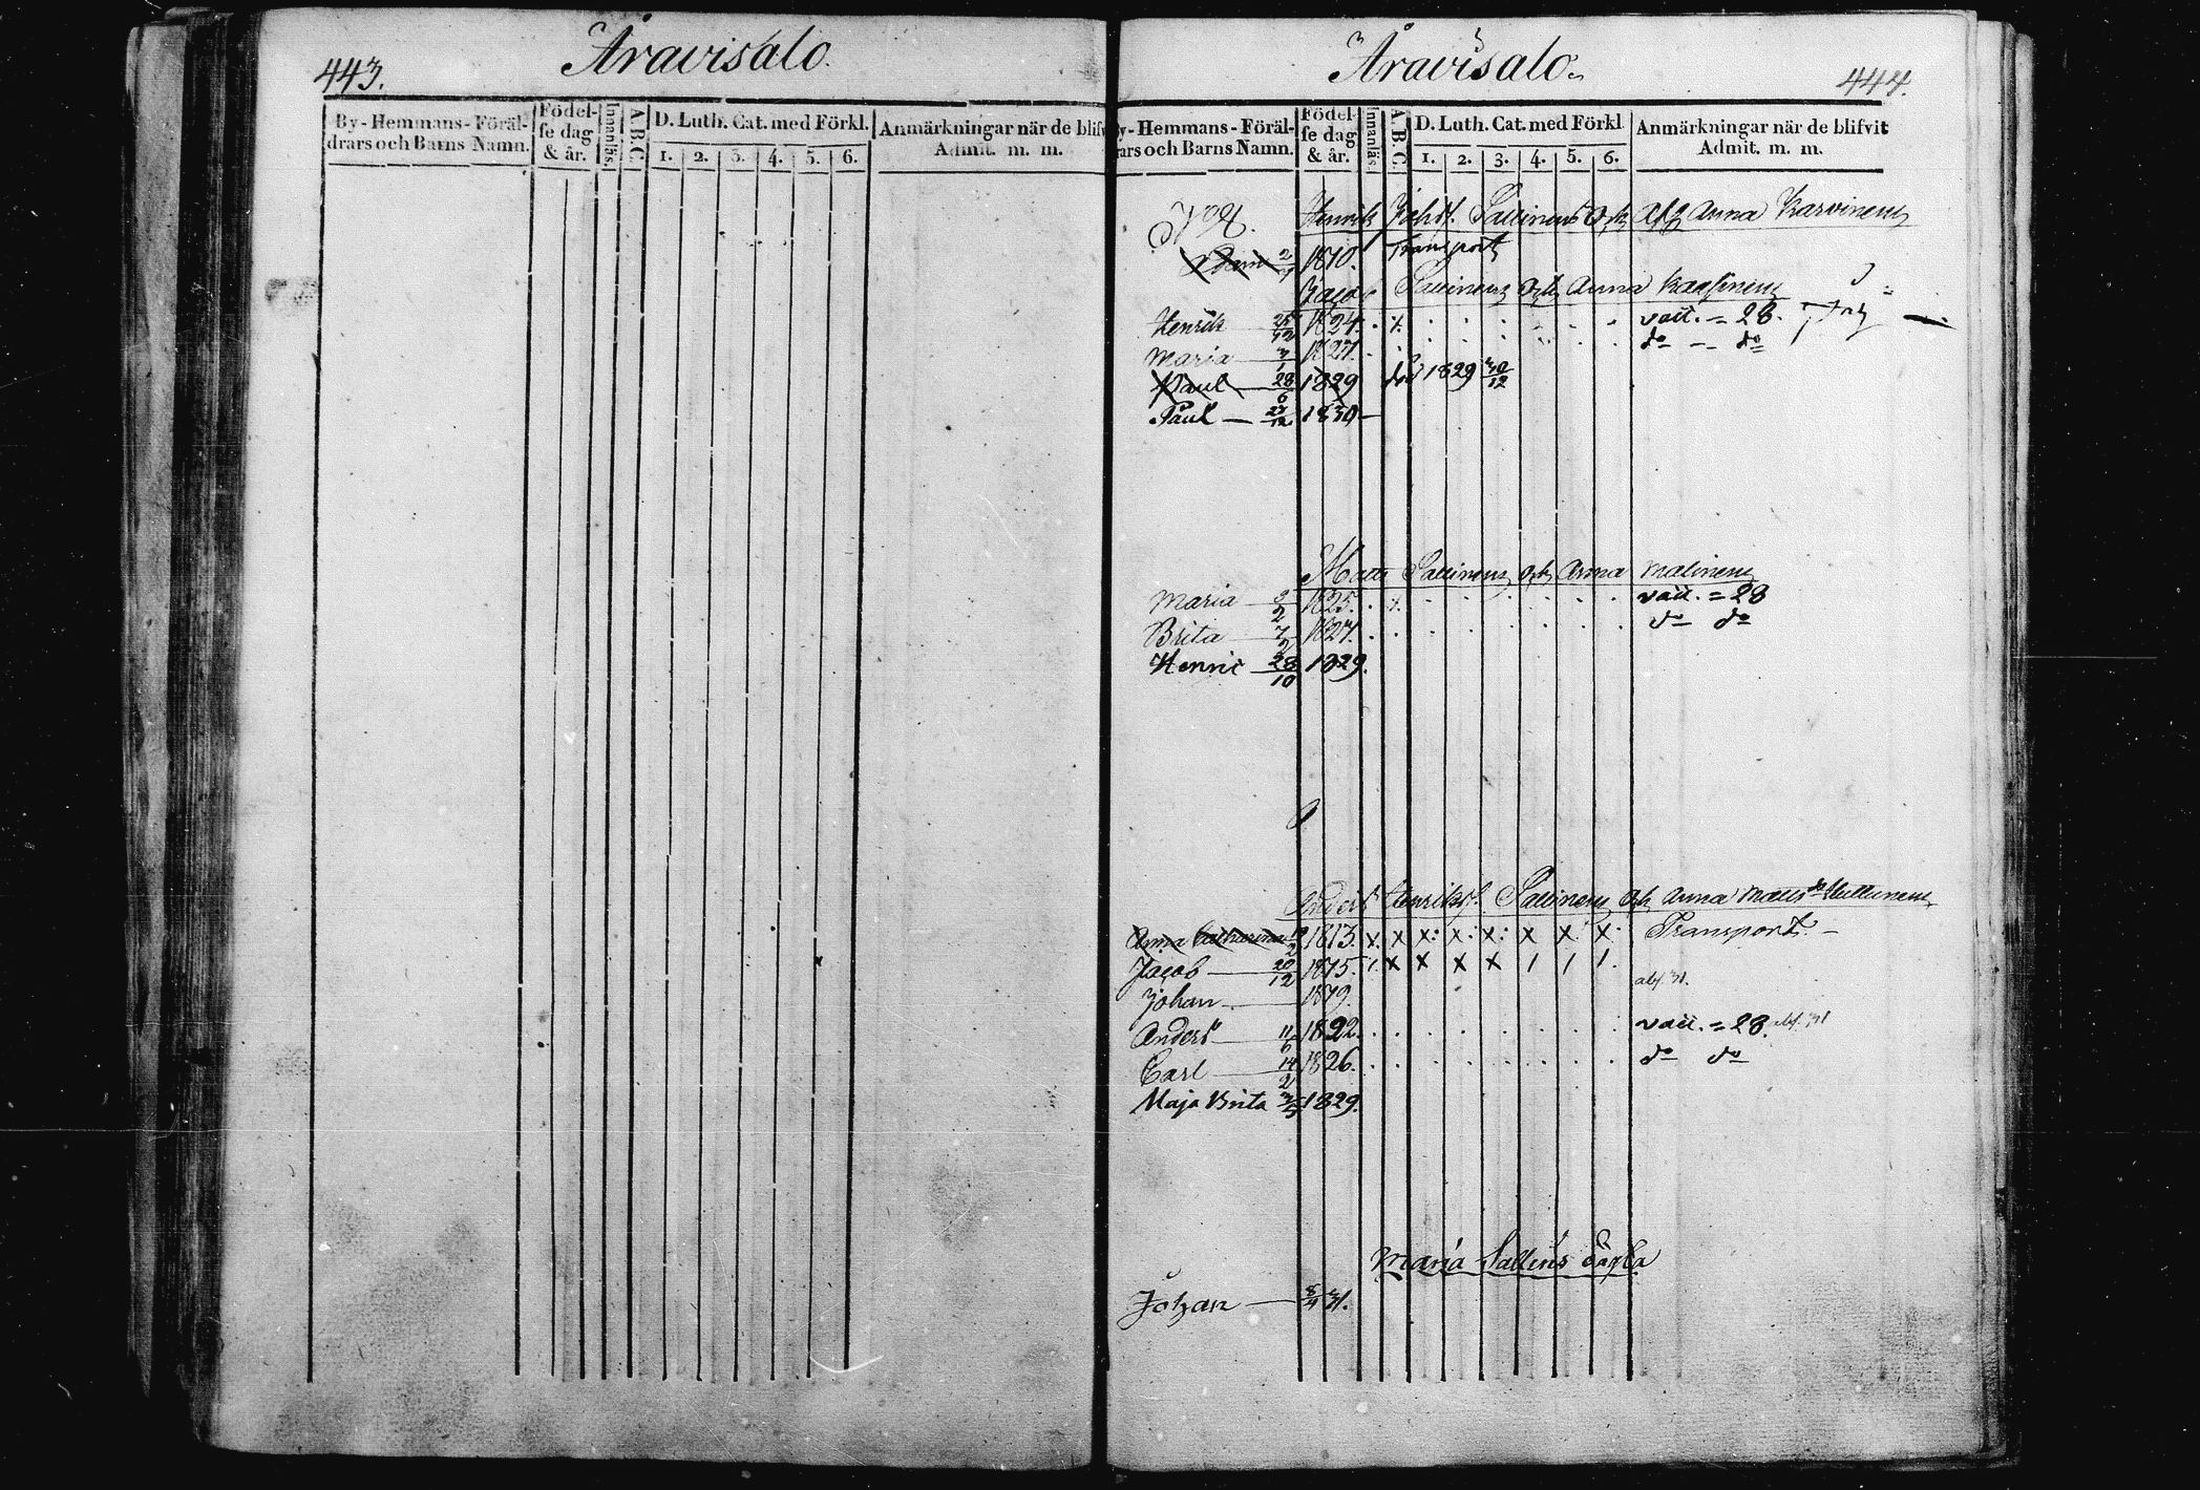 443.
Åravisalo.
By-Hemmans-Föräl-
drars och Barns Namn.
Födel-
se dag
& år.
Innanläs.
A.B.C.
D. Luth. Cat. med Förkl.
1. 2. 3. 4. 5. 6.
Anmärkningar när de blifv
Admit. m. m.
Åravisalo.
444.
y-Hemmans-Föräl-
rars och Barns Namn.
Födel-
se dag
& år.
Innanläs.
A.B.C.
D. Luth. Cat. med Förkl.
1. 2. 3. 4. 5. 6.
Anmärkningar när de blifvit
Admit. m. m.
Henrik Joh:s. Sallinens och Anna Karvinens
1810. Transport
Jacob Sallinens och Anna
Henrik 25/12 1824. vacc. = 28.
Maria 3/1 1827. do - do
Paul 28/6 1829 död 1829 30/12
Paul — 27/12 1830 —
Matts Sallinens och Anna Malinens
Maria 3/2 1825. vacc. = 28
Brita 7/2 1827. do do
Henric 28/10 1829.
Anders Henriks. Sallinens och Anna Matts dr Hullunens
Anna Catharina 1813. x. x x: x: x: x x: x. Transport. —
Jacob — 20/12 1815. 1. x x x x 1 1 1.
Johan — 1819. abs. 31.
Anders — 11/6 1822. vacc. = 28. abs. 31
Carl — 14/2 1826. do do
Maja Brita 3/5 1829.
Maria Sallin's oägta
Johan — 8/4 31.